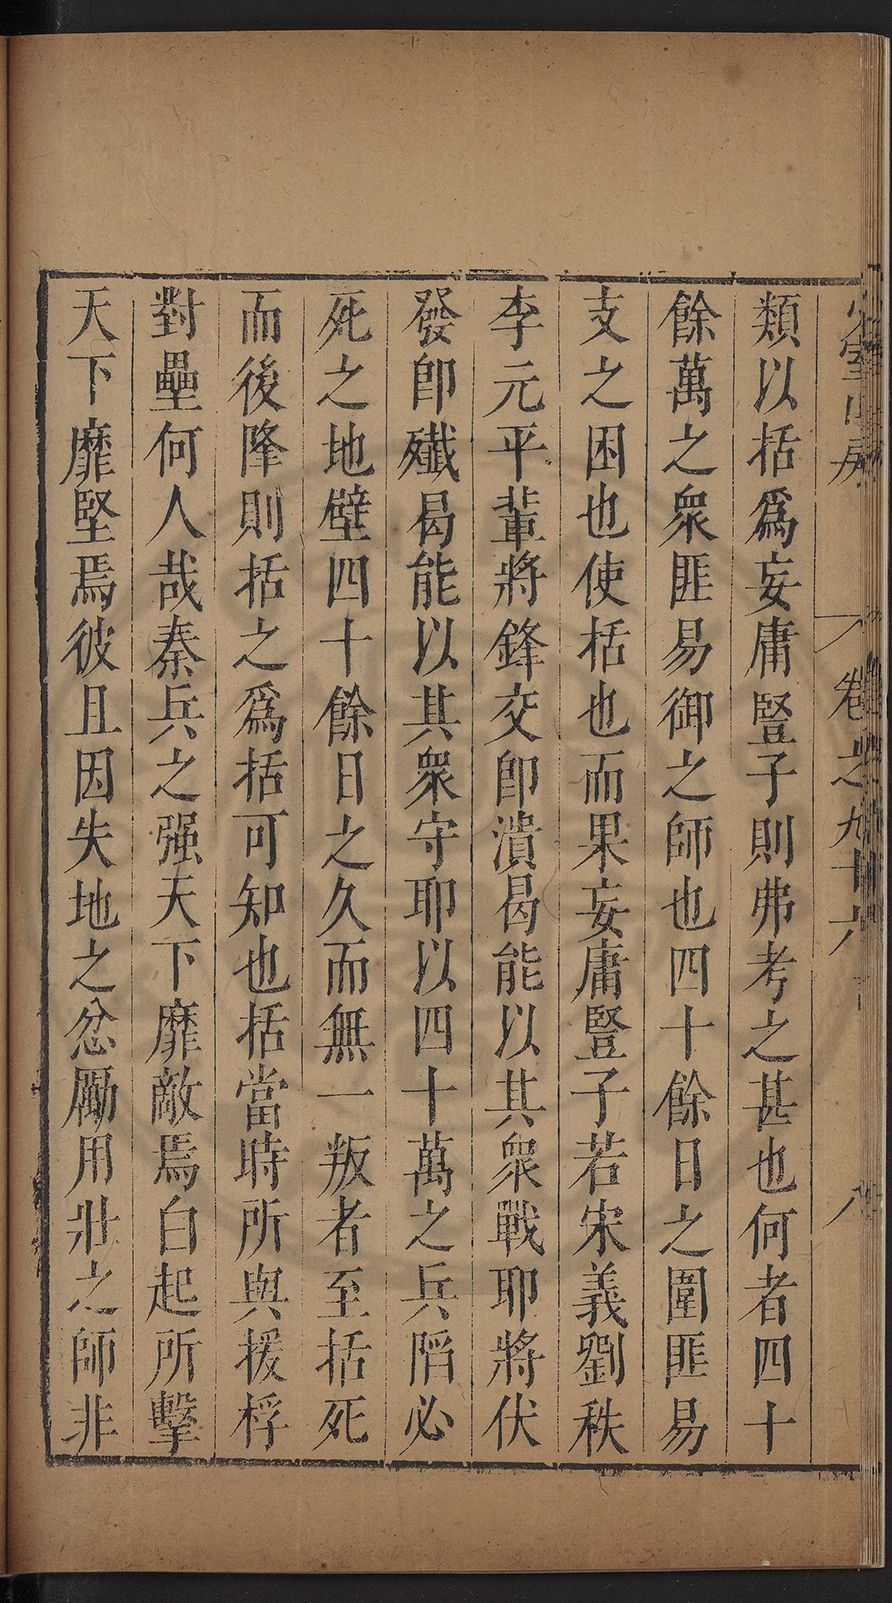 少室山房
卷之九十六
八
類以括爲妄庸豎子則弗考之甚也何者四十
餘萬之衆匪易御之師也四十餘日之圍匪易
支之困也使括也而果妄庸豎子若宋義劉秩
李元平輩將鋒交卽潰曷能以其衆戰耶將伏
發卽殲曷能以其衆守耶以四十萬之兵陷必
死之地壁四十餘日之久而無一叛者至括死
而後降則括之爲括可知也括當時所與援桴
對壘何人哉秦兵之强天下靡敵焉白起所擊
天下靡堅焉彼且因失地之忿勵用壯之師非